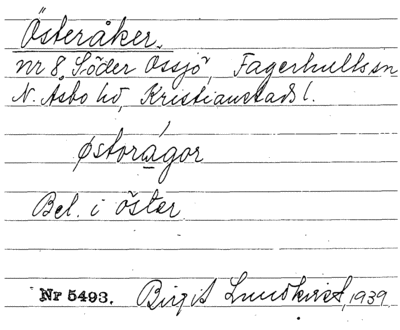 Österåker.
nr 8 Söder Ossjö, Fagerhults sn
N. Åsbo hd, Kristianstads l.
østorágor
Bel. i öster
Nr 5493. Birgit Lundkvist, 1939